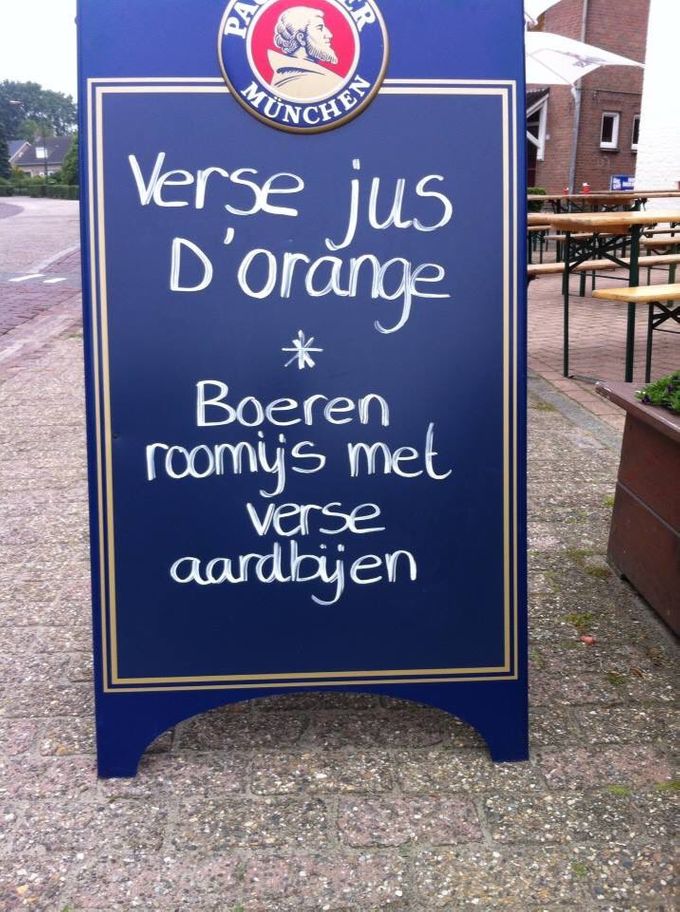 MÜNCHEN
Verse jus
D'orange
*
Boeren
roomijs met
verse
aardbijen